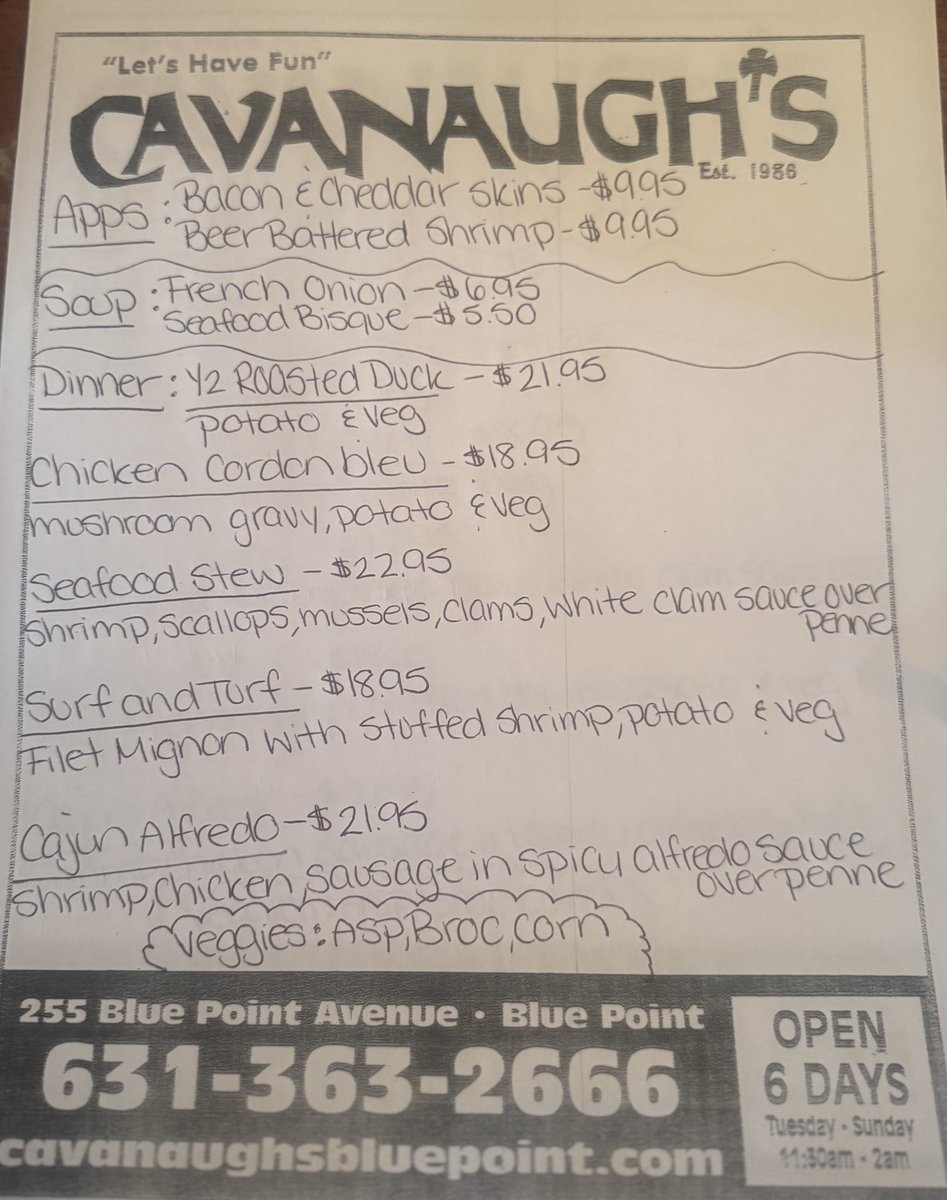 "Let's Have Fun"
CAVANAUGH'S
Est. 1986
Apps : Bacon & Cheddar Skins - $9.95
: Beer Battered Shrimp - $9.95
Soup : French Onion - $6.95
: Seafood Bisque - $5.50
Dinner : 1/2 Roasted Duck - $21.95
potato & veg
Chicken Cordon bleu - $18.95
mushroom gravy, potato & veg
Seafood Stew - $22.95
Shrimp, scallops, mussels, clams, white clam sauce over
Penne
Surf and Turf - $18.95
Filet Mignon with Stuffed Shrimp, potato & veg
Cajun Alfredo - $21.95
Shrimp, Chicken, Sausage in spicy alfredo sauce
over penne
Veggies: ASP, Broc, corn
255 Blue Point Avenue • Blue Point
631-363-2666
cavanaughsbluepoint.com
OPEN
6 DAYS
Tuesday - Sunday
11:30am - 2am